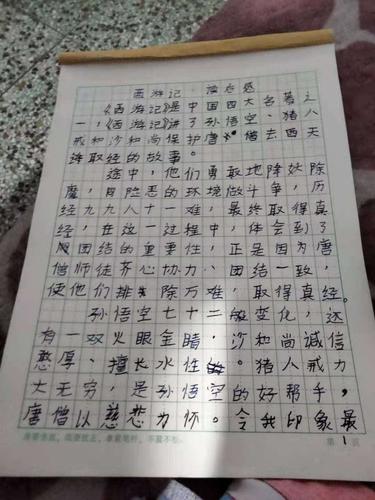 西游记·读后感
《西游记》是中国四大名著之
一，《西游记》讲了孙悟空、猪八
戒和沙和尚保护唐僧去西天
取经的故事。
途中，他们勇敢地降妖除
魔，与险恶的环境做斗争，历
经九九八十一难，最终取得真
经，在这一过程中，体会到了
团结的重要性，正是因为唐
僧师徒齐心协力、团结一致，
使他们排除万难，取得真经。
孙悟空七十二般变化，还
有一双火眼金睛，沙和尚诚信
憨厚、擅长水性。猪八戒力
大无穷，是孙悟空的好帮手，
唐僧以慈悲为怀。令我印象最
第1页